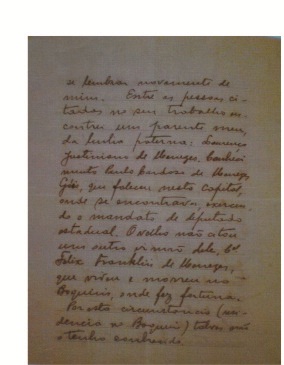 se lembrar novamente de
mim. Entre as pessoas ci-
tadas no seu trabalho en-
contrei um parente meu,
da linha paterna: Lourenço
Justiniano de Menezes.
mento Paulo Barbosa de Menezes
que faleceu nesta Capital,
onde se encontrava, exercen-
do o mandato de deputado
estadual. O velho não citou
um outro irmão dele, Cel
Felix Franklin de Menezes,
que viveu e morreu no
Boqueirão, onde fez fortuna.
Por esta circunstancia (resi-
dencia no Boqueirão) talvez não
o tenha lembrado.